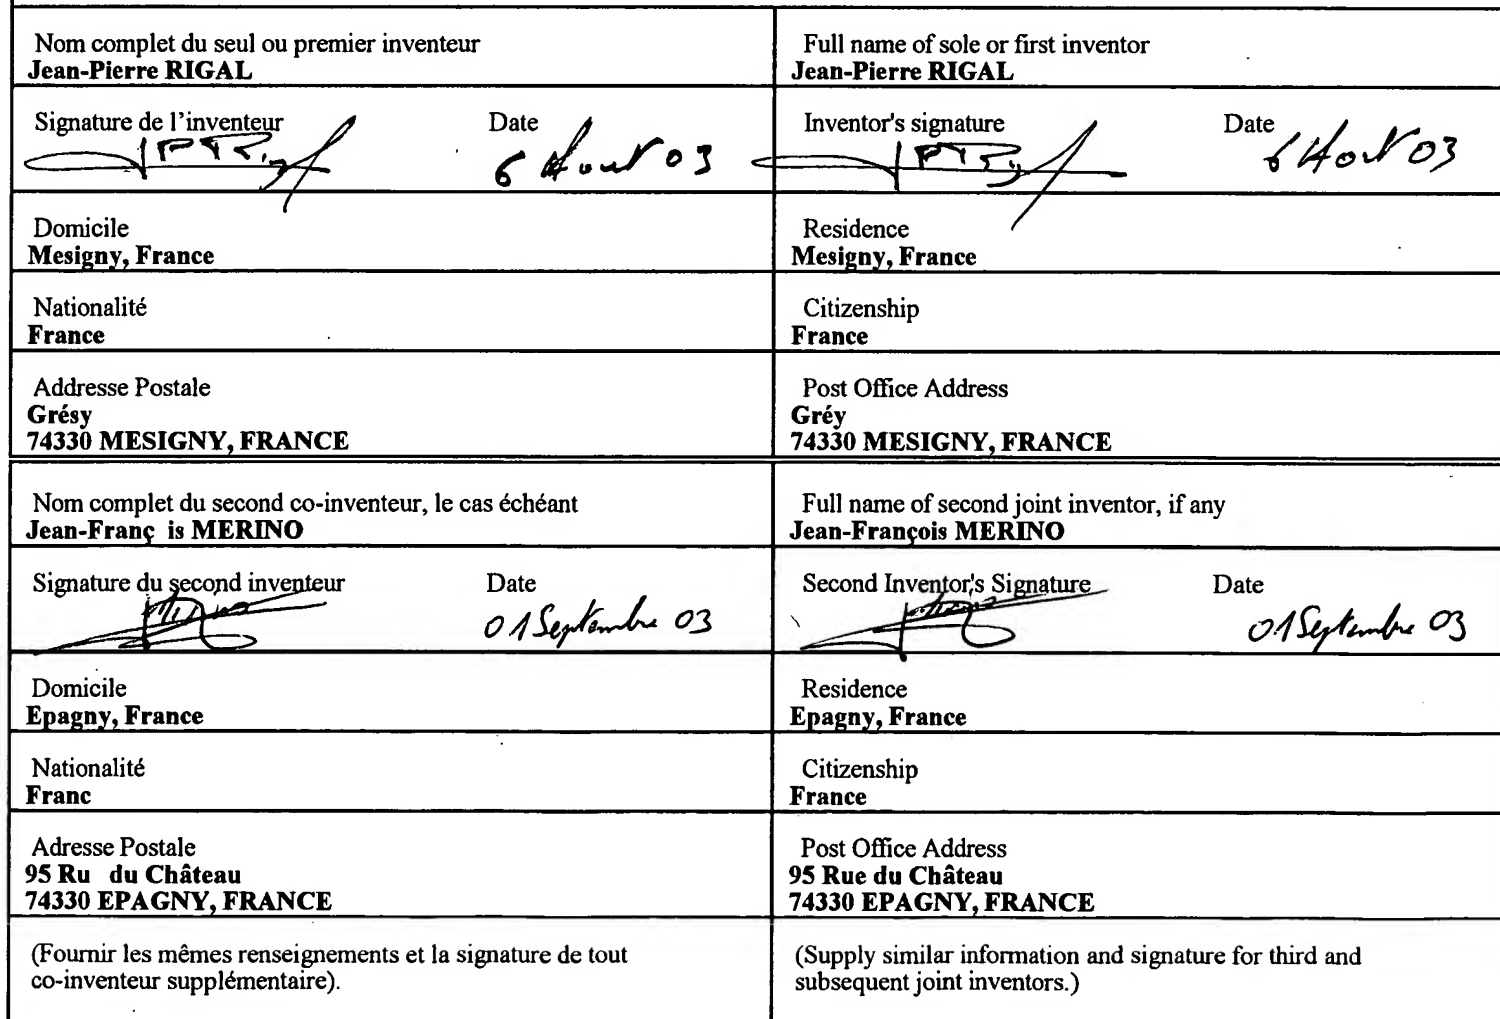 Nom complet du seul ou premier inventeur
Jean-Pierre RIGAL
Full name of sole or first inventor
Jean-Pierre RIGAL
Signature de l'inventeur
Date
6 Aout 03
Inventor's signature
Date
6 Aout 03
Domicile
Mesigny, France
Residence
Mesigny, France
Nationalité
France
Citizenship
France
Addresse Postale
Grésy
74330 MESIGNY, FRANCE
Post Office Address
Gréy
74330 MESIGNY, FRANCE
Nom complet du second co-inventeur, le cas échéant
Jean-Franç is MERINO
Full name of second joint inventor, if any
Jean-François MERINO
Signature du second inventeur
Date
01 Septembre 03
Second Inventor's Signature
Date
01 Septembre 03
Domicile
Epagny, France
Residence
Epagny, France
Nationalité
Franc
Citizenship
France
Adresse Postale
95 Ru du Château
74330 EPAGNY, FRANCE
Post Office Address
95 Rue du Château
74330 EPAGNY, FRANCE
(Fournir les mêmes renseignements et la signature de tout
co-inventeur supplémentaire).
(Supply similar information and signature for third and
subsequent joint inventors.)